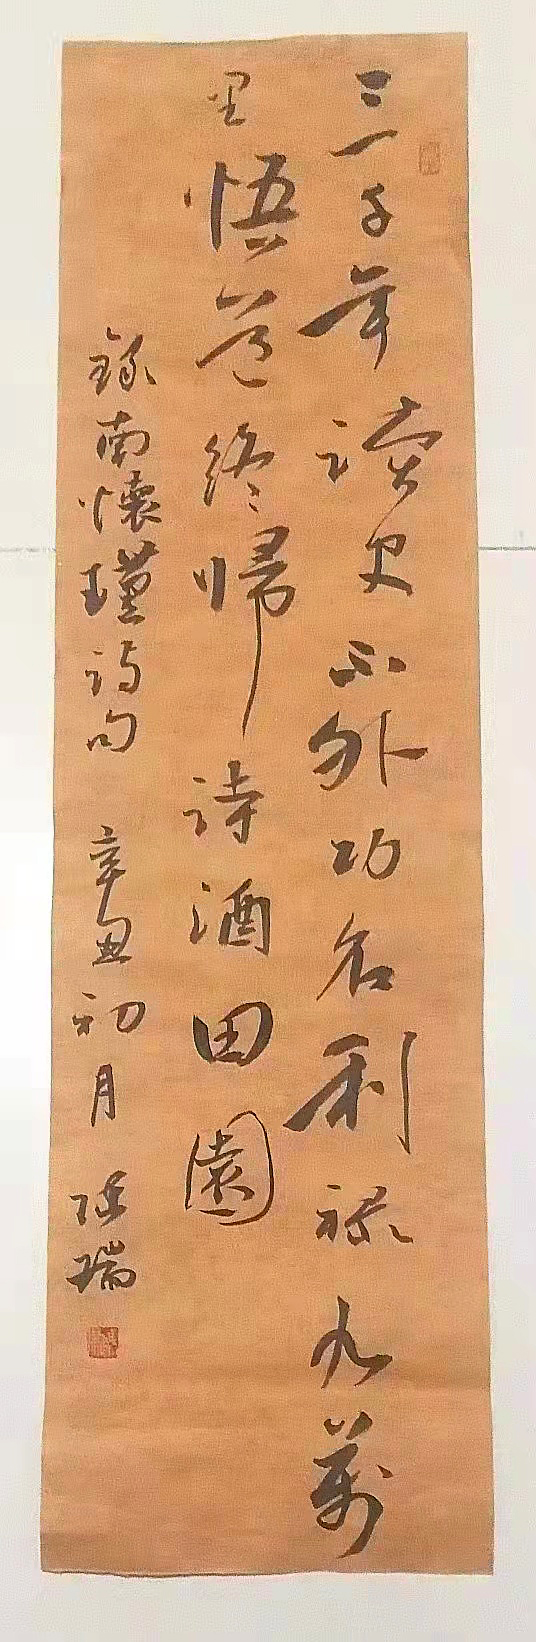 三千年读史不外功名利禄九萬
里悟道终歸诗酒田園
録南懷瑾诗句 辛丑初月 陈瑞